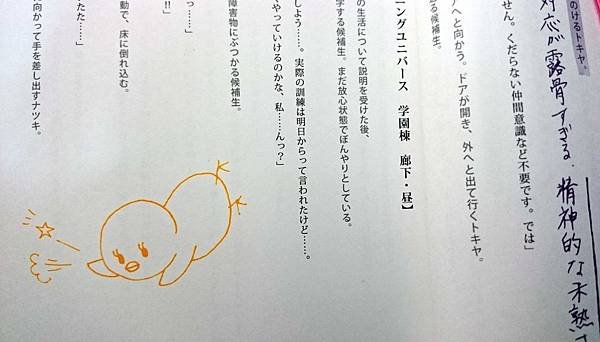 のけるトキヤ。
対応が露骨すぎる。精神的な未熟さ
せん。くだらない仲間意識など不要です。では」
アへと向かう。ドアが開き、外へと出て行くトキヤ。
る候補生。
ニングユニバース　学園棟　廊下・昼】
の生活について説明を受けた後、
学する候補生。まだ放心状態でぼんやりとしている。
しよう……。実際の訓練は明日からって言われたけど……。
やっていけるのかな、私……んっ？」
障害物にぶつかる候補生。
っ……」
!!」
動で、床に倒れ込む。
たた……」
向かって手を差し出すナツキ。